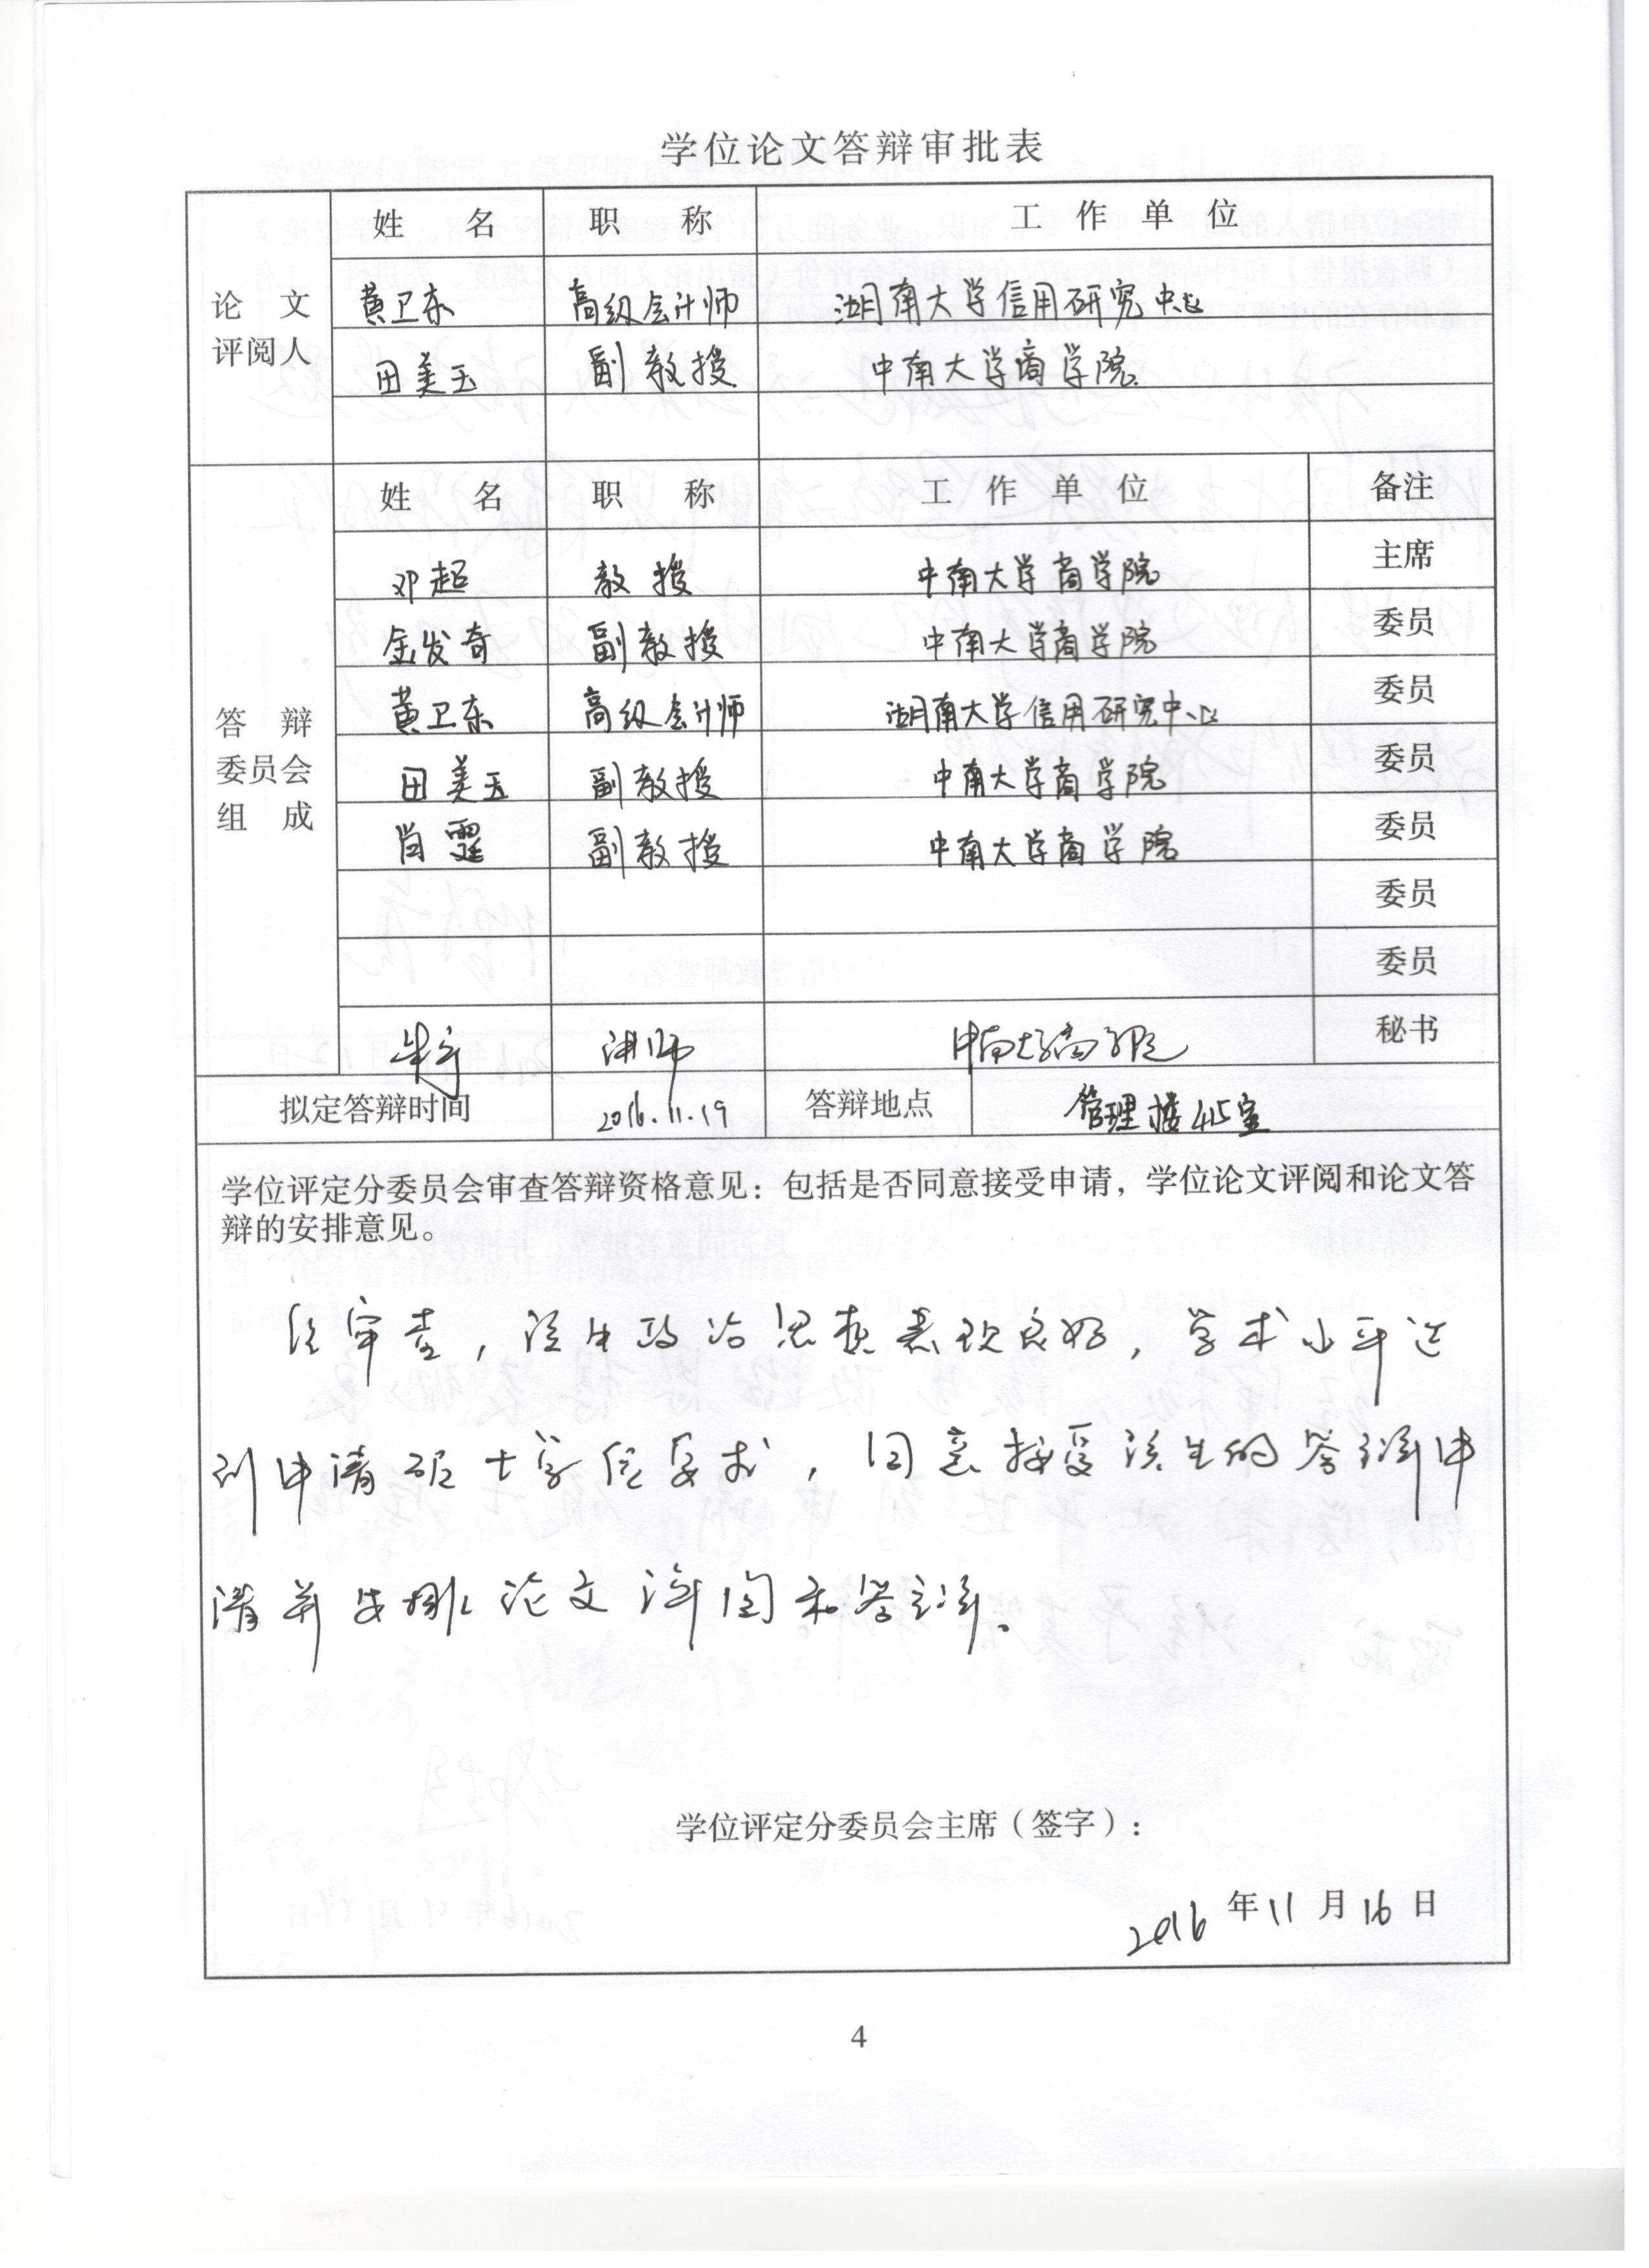 学位论文答辩审批表
姓 名 职 称 工 作 单 位
论 文
评阅人
黄卫东 高级会计师 湖南大学信用研究中心
田美玉 副教授 中南大学商学院
姓 名 职 称 工 作 单 位 备注
答 辩
委员会
组 成
邓超 教授 中南大学商学院 主席
金发奇 副教授 中南大学商学院 委员
黄卫东 高级会计师 湖南大学信用研究中心 委员
田美玉 副教授 中南大学商学院 委员
肖霆 副教授 中南大学商学院 委员
委员
委员
讲师 中南大学商学院 秘书
拟定答辩时间 2016.11.19 答辩地点 管理楼415室
学位评定分委员会审查答辩资格意见：包括是否同意接受申请，学位论文评阅和论文答
辩的安排意见。
经审查，该生政治思想表现良好，学术水平达
到申请硕士学位要求，同意接受该生的答辩申
请并安排论文评阅和答辩。
学位评定分委员会主席（签字）：
2016 年 11 月 16 日
4